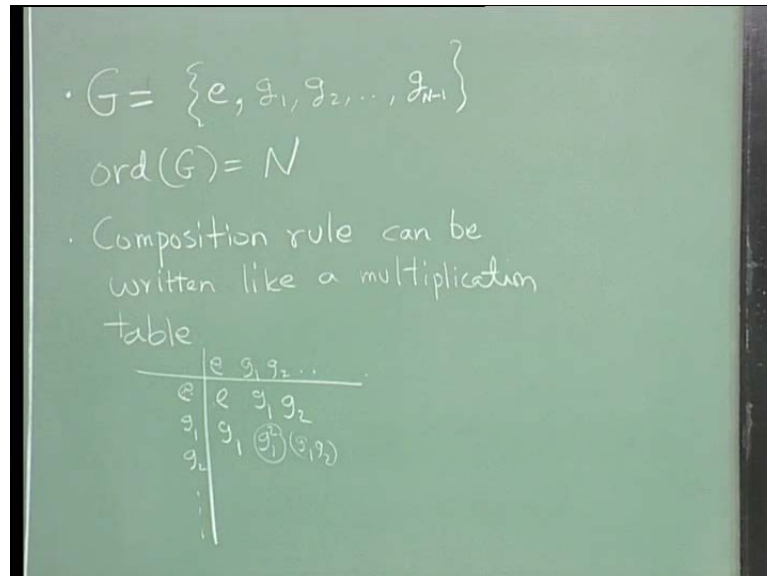 · G = {e, g₁, g₂, .., g_N-1}
ord(G) = N
· Composition rule can be
written like a multiplication
table
e g₁ g₂ ...
e e g₁ g₂
g₁ g₁ g₁² (g₁g₂)
g₂